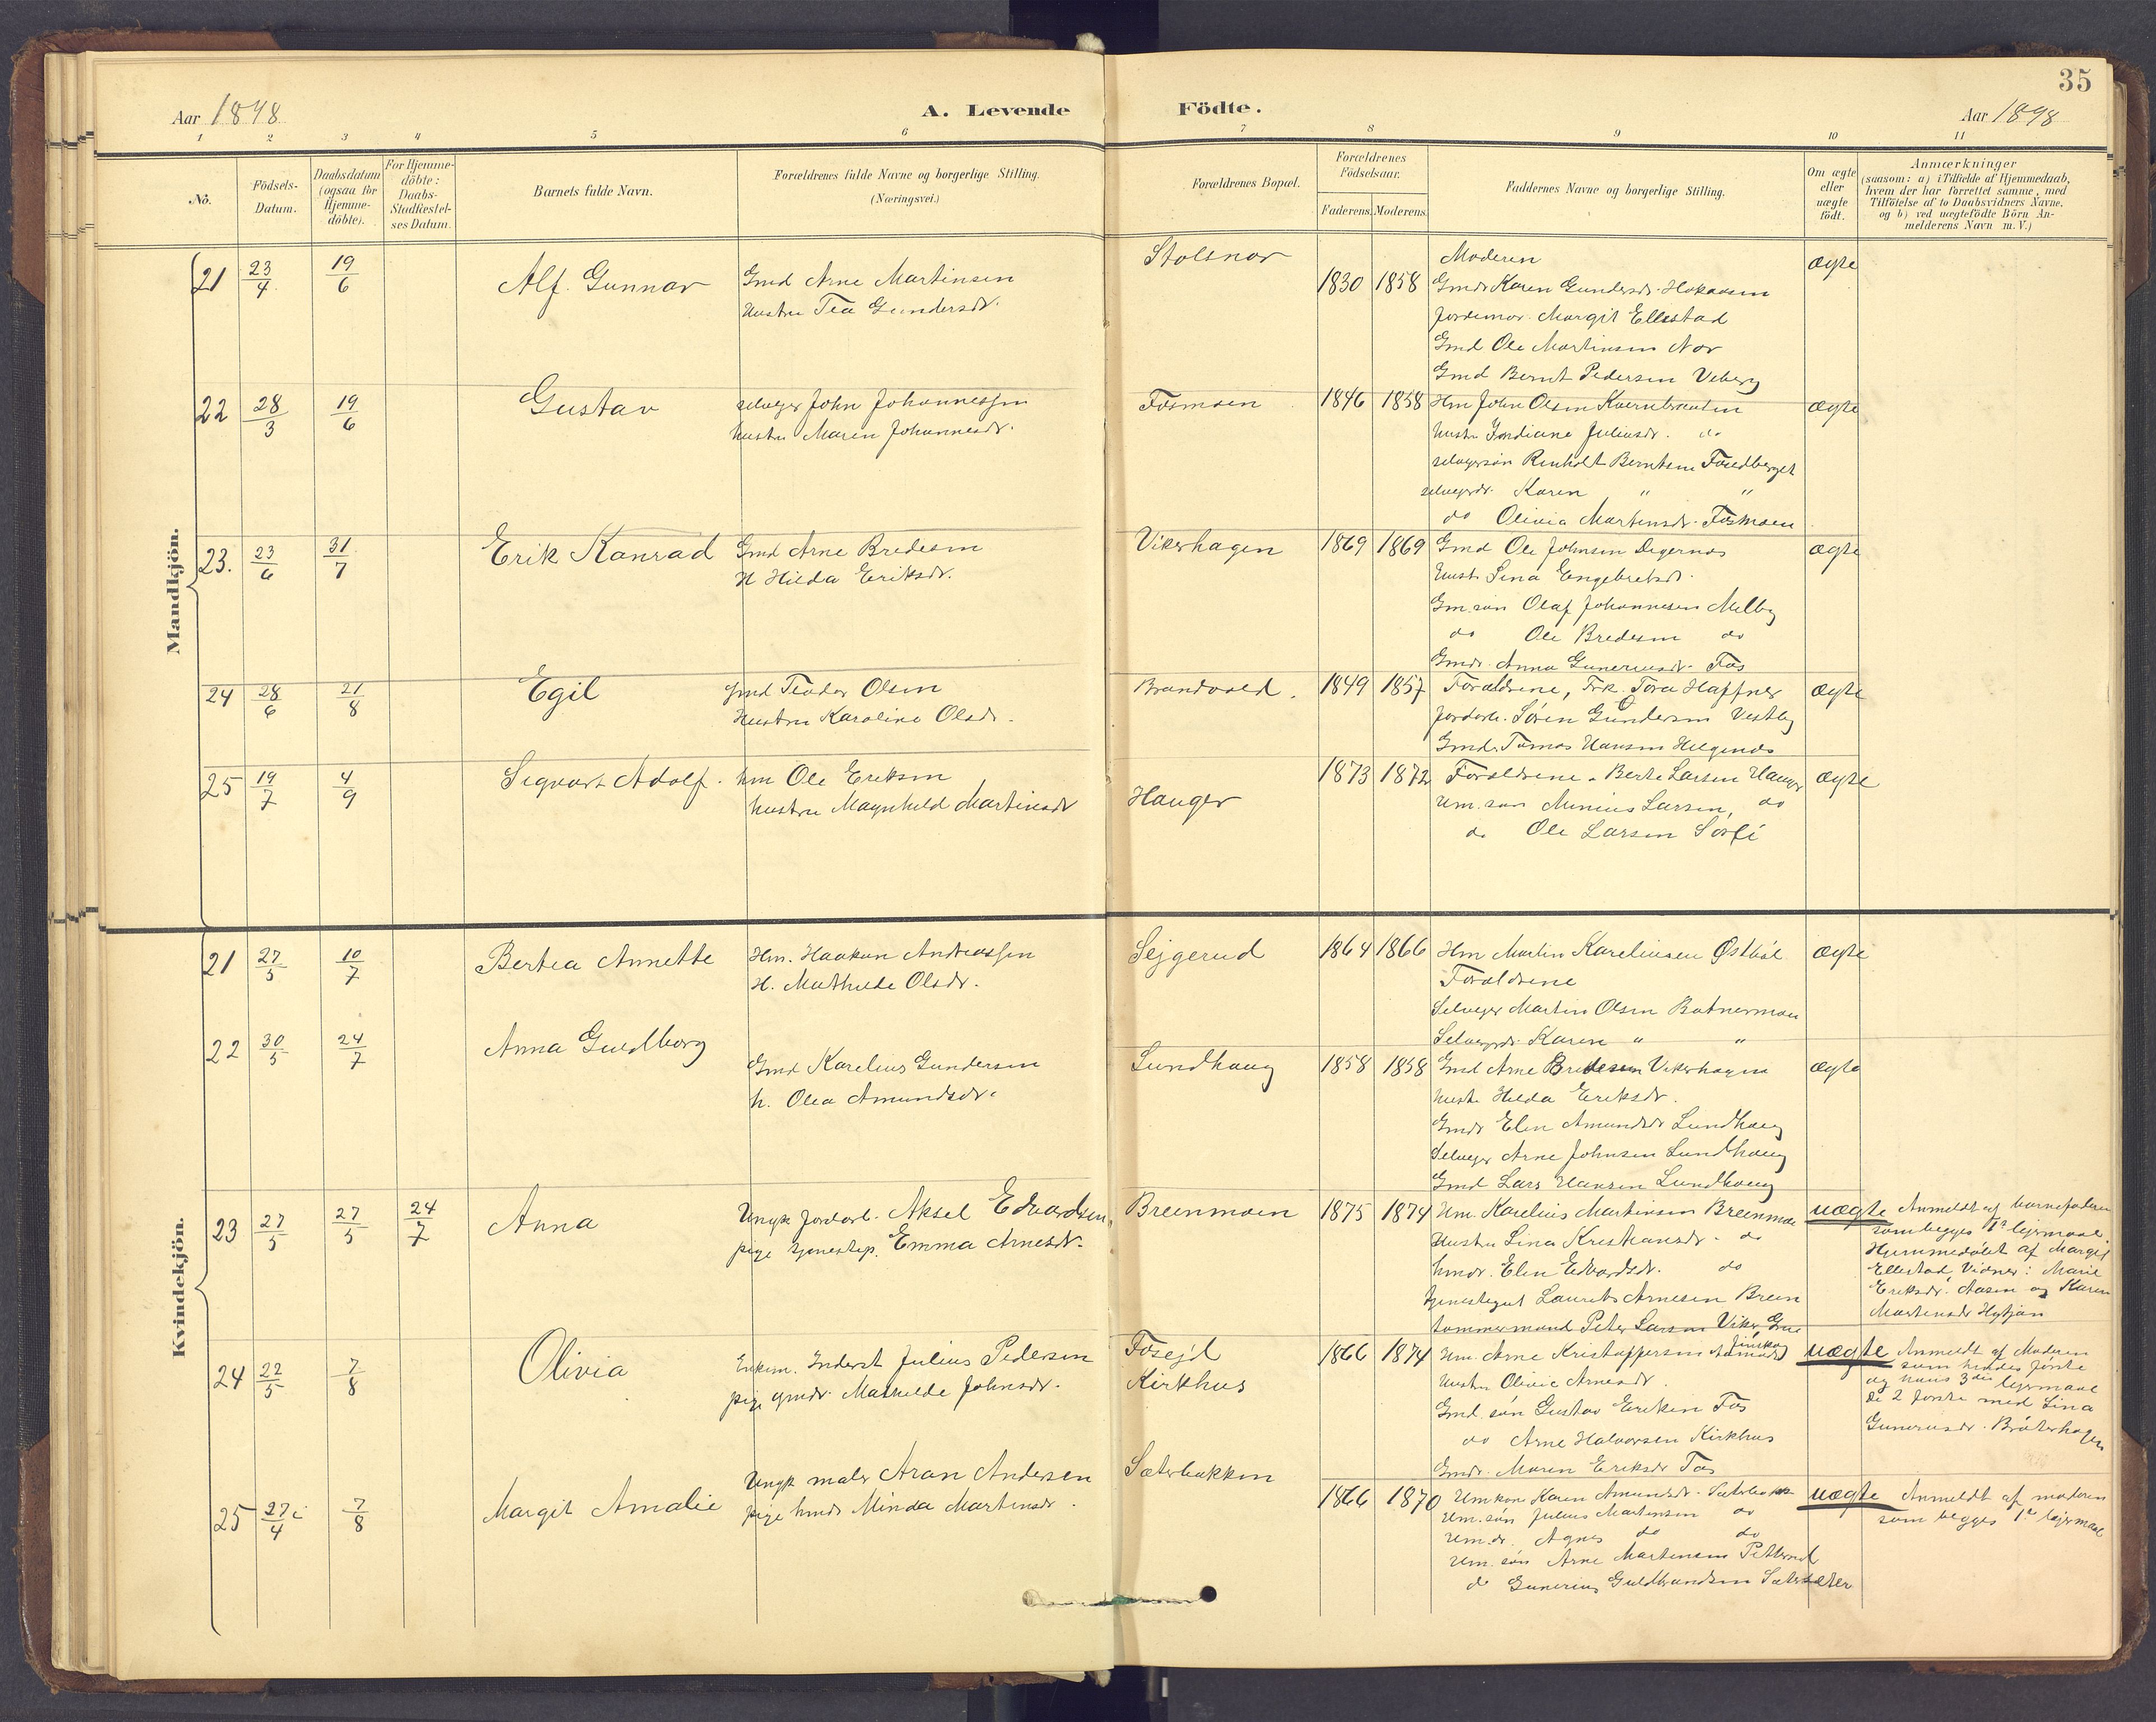 35
Aar 1898
A. Levende Födte.
Aar 1898
1 2 3 4 5 6 7 8 9 10 11
No.
Födsels-Datum.
Daabsdatum (ogsaa for Hjemme-döbte).
For Hjemme-döbte: Daabs-Stadfæstel-ses Datum.
Barnets fulde Navn.
Forældrenes fulde Navne og borgerlige Stilling.
(Næringsvei.)
Forældrenes Bopæl.
Forældrenes Födselsaar.
Faderens. Moderens.
Faddernes Navne og borgerlige Stilling.
Om ægte eller uægte födt.
Anmærkninger
(saasom: a) i Tilfælde af Hjemmedaab,
hvem der har forrettet samme, med
Tilföielse af to Daabsvidners Navne,
og b) ved uægtefödte Börn An-
melderens Navn m.V.)
Mandkjön.
21 23/4 19/6 Alf. Gunnar
Gmd Arne Martinsen
Hustru Tea Gundersdr.
Stolsnor
1830 1858
Moderen
Gmdr Karen Gundersdr.
Jordemor. Margit Ellestad
Gmd Ole Martinsen Nor
Gmd Bernt Pedersen Veberg
ægte
22 28/3 19/6 Gustav
selveger John Johannessen
hustru Maren Johannesdr.
Fosmoen
1846 1858
Hm John Olsen Kvernbraaten
hustr Indiane Juliusdr. do
selvegersön Reinholt Berntsen Fossedberget
selvegerdr. Karen " "
do Olivia Martinsdr. Fosmoen
ægte
23. 23/6 31/7 Erik Konrad
Gmd Arne Bredesen
H Hilda Eriksdr.
Vikerhagen
1869 1869
Gmd Ole Johnsen Degernes
hust. Lina Engebretsdr.
Gm. sön Olaf Johannesen Melby
do Ole Bredesen do
Gmdr. Anna Guneriusdr. Fos
ægte
24 28/6 21/8 Egil
Gmd Teodor Olsen
Hustru Karoline Olsdr.
Brandvold.
1849 1857
Forældrene, Frk. Tora Haffner
Jordarb. Sören Gundersen Vestby
Gmd. Tomas Hansen Helgenes
ægte
25 19/7 4/9 Sigvart Adolf.
hm Ole Eriksen
hustru Magnhild Martinsdr
Hauger
1873 1872
Forældrene. Berte Larsen Hauger
Hm. sön Larsen, do
do Ole Larsen Sörli
ægte
Kvindekjön.
21 27/5 10/7 Bertea Annette
Hm. Haakon Andreassen
H. Mathilde Olsdr.
Sejgerud
1864 1866
Hm Martin Kareliusen Östböl
Forældrene
Selveger Martin Olsen Botnermoen
Selvegdr. Karen " "
ægte
22 30/5 24/7 Anna Guldborg
Gmd Karelius Gundersen
h. Olea Amundsdr.
Lundhaug
1858 1858
Gmd Arne Bredesen Vikerhagen
hustr. Hilda Eriksdr.
Gmdr Elen Amundsdr Lundhaug
Selveger Arne Johnsen Lundhaug
Gmd Lars Hansen Lundhaug
ægte
23 27/5 27/5 24/7 Anna
Ungk. jordarb. Aksel Edvardsen.
pige tjenestep. Emma Arnesdr.
Breenmoen
1875 1874
Hm. Karelius Martinsen Breenmoen
Hustru Lina Kristiansdr. do
hmdr. Elen Edvardsdr. do
tjenestegut Laurits Arnesen Breen
tommermand Peter Larsen Viker, Grue
uægte
Anmeldt af barnefaderen
som begges 1te lejrmaal.
Hjemmedöbt af Margit
Ellestad, Vidner: Marie
Eriksdr. Aasen og Karen
Martinsdr Hytjan
24 22/5 7/8 Olivia
Enkem. Inderst Julius Pedersen
pige gmdr. Mathilde Johnsdr.
Fosejd
Kirkhus
1866 1874
Hm. Arne Kristoffersen
Hustru Olivie Arnesdr.
Gmd. sön Gustav Eriksen Fos
do Arne Halvorsen Kirkhus
Gmdr. Maren Eriksdr Fos
uægte
Anmeldt af Moderen
som hendes förste
og hans 3die lejrmaal
de 2 förste med Lina
Guneriusdr. Bråterhagen
25 27/4 7/8 Margit Amalie
Ungk maler Aran Andersen
pige hmdr Minda Martinsdr.
Sæterbakken
1866 1870
Hmkone Karen Amundsdr. Sæterbakken
Hm. sön Julius Martinsen do
Hm. dr. Agnes do do
Hm. sön Arne Martinsen
do Gunerius Guldbrandsen
uægte
Anmeldt af moderen
som begges 1te lejrmaal